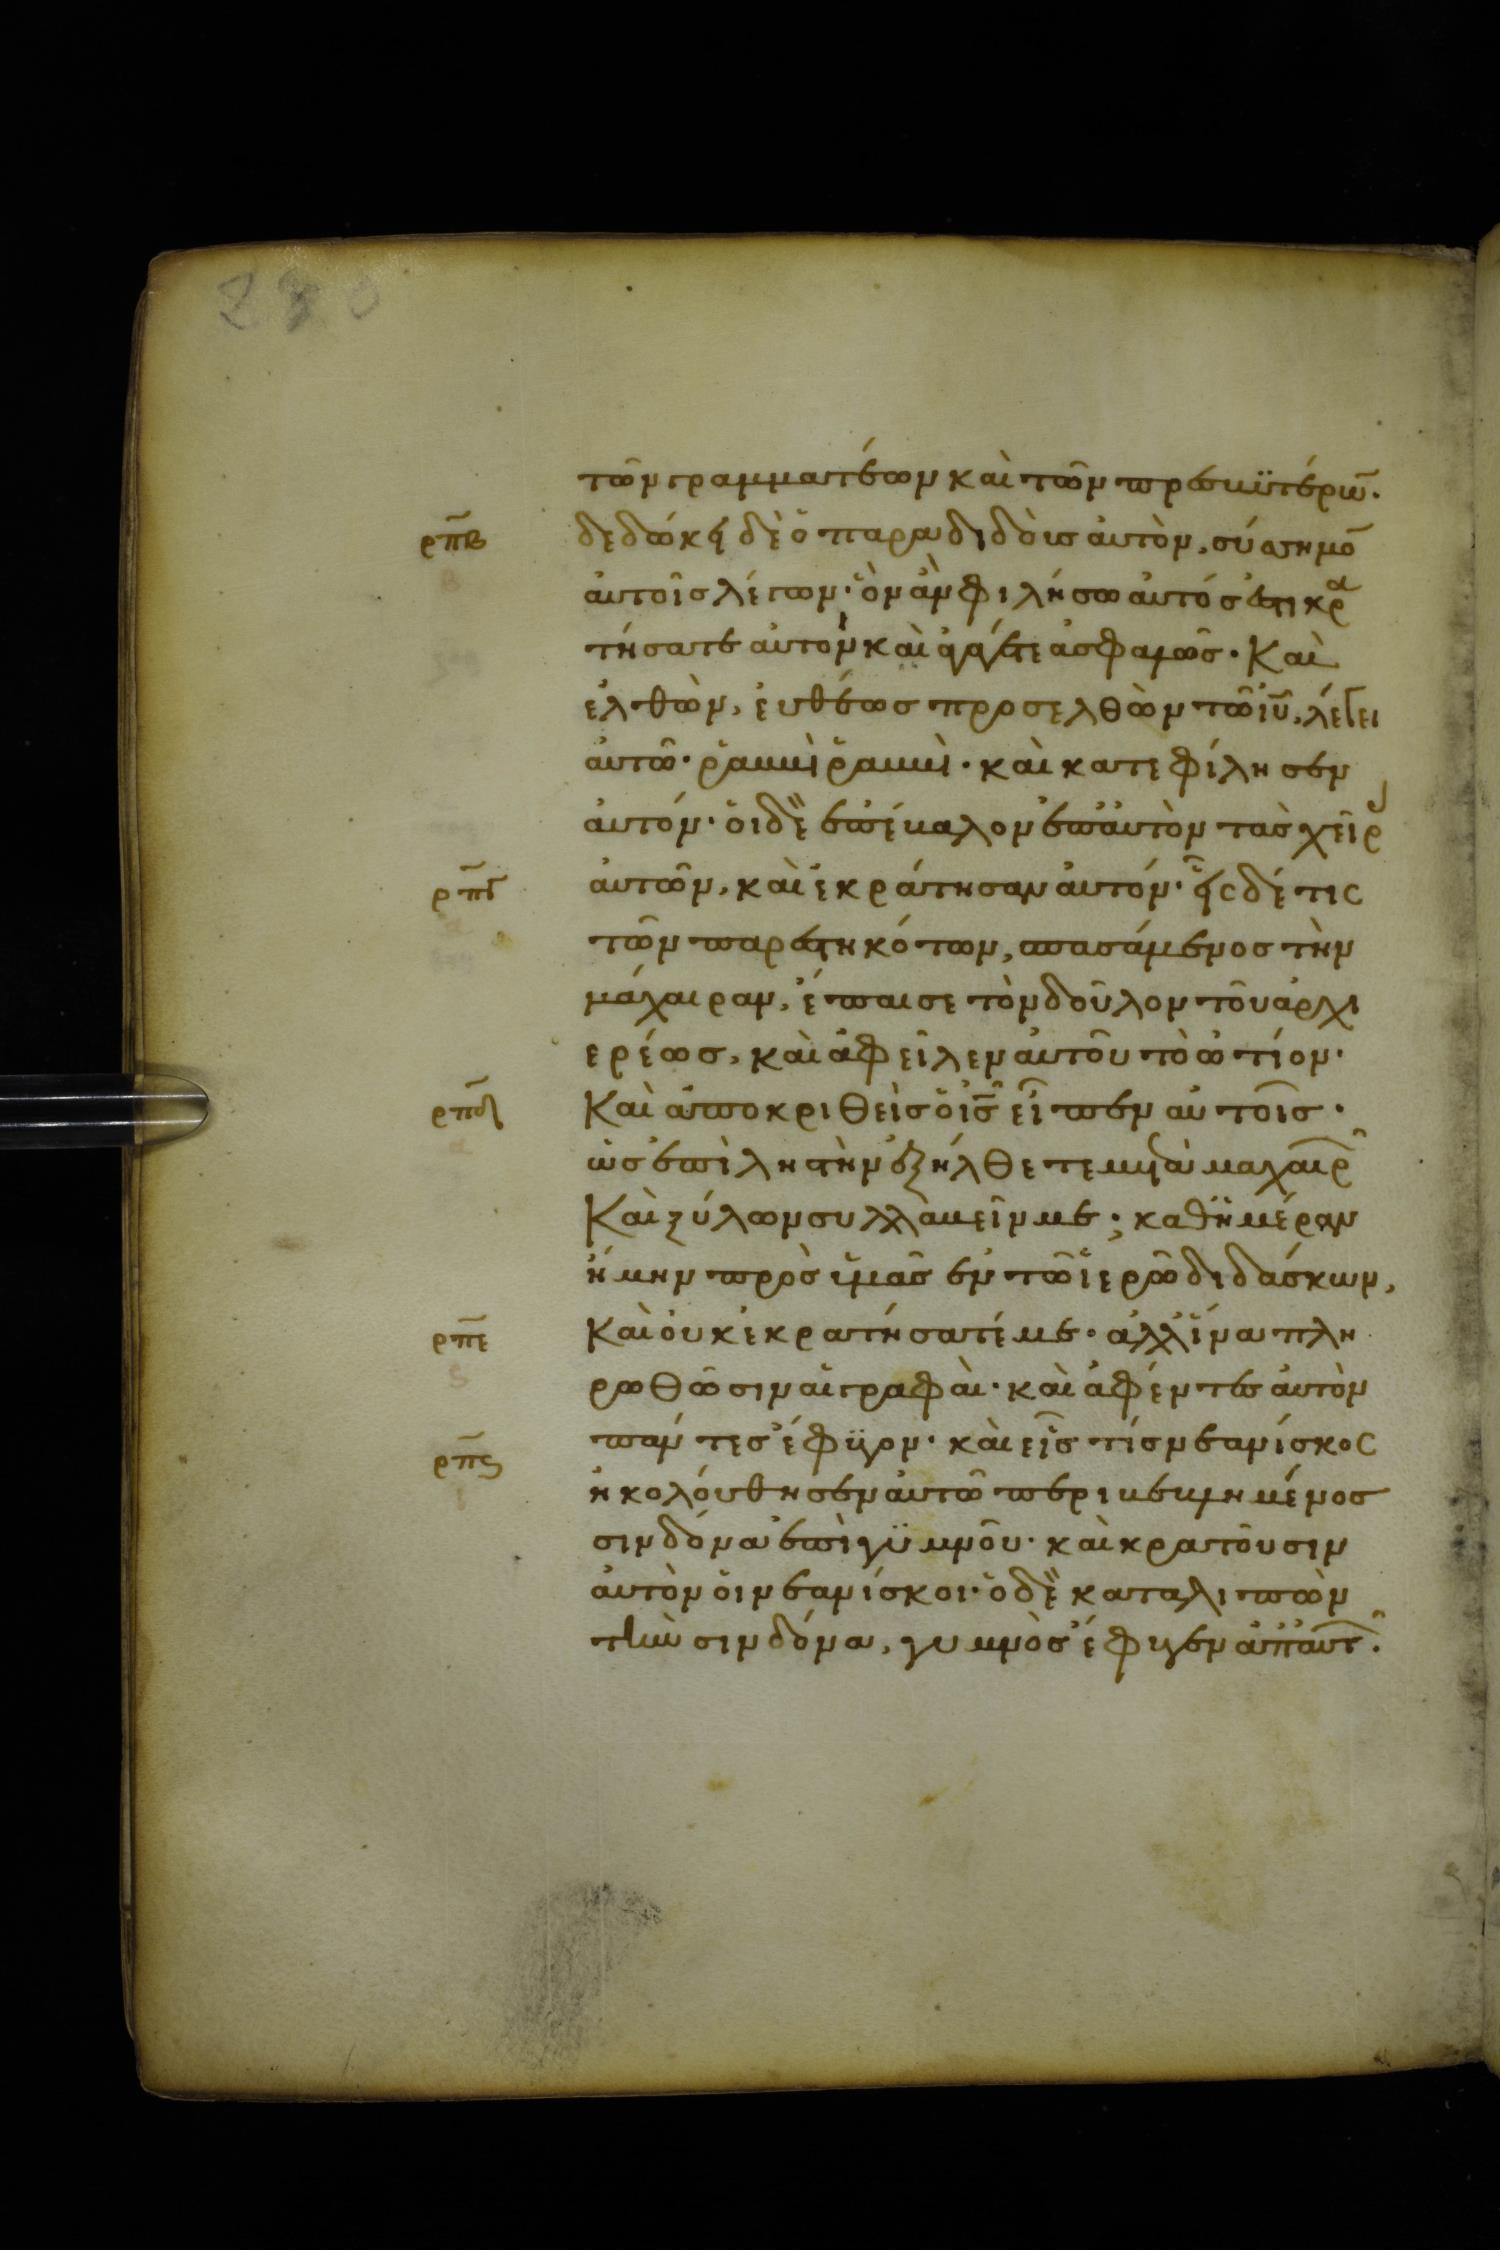 280
τῶν γραμματέων καὶ τῶν πρεσβϋτέρω̃·
ρπ̅β δεδώκει δὲ ὁ παραδιδοὺς ἀυτὸν, σύσσημο̃
ἀυτοῖς λέγων· ὃν ἂν φιλήσω ἀυτός ἐστι κρα
τήσατε ἀυτὸν καὶ ἀπάγετε ἀσφαλῶς· Καὶ
ἐλθὼν, ἐυθέως προσελθὼν τῶ ἰῦ, λέγει
ἀυτῶ· ῥαββὶ ῥαββὶ· καὶ κατεφίλησεν
ἀυτόν· ὁι δὲ ἐπέβαλον ἐπ' ἀυτὸν τὰς χεῖρ
ρπ̅γ ἀυτῶν, καὶ ἐκράτησαν ἀυτόν· εἷς δέ τις
τῶν παρεστηκότων, σπασάμενος τὴν
μάχαιραν, ἔπαισε τὸν δοῦλον τοῦ ἀρχι
ερέως, καὶ ἀφεῖλεν ἀυτοῦ τὸ ὠτίον·
ρπ̅δ Καὶ ἀποκριθεὶς ὁ ἰς̅ εἶπεν ἀυτοῖς·
ὡς ἐπὶ ληστὴν ἐξήλθετε μετὰ μαχαιρ
Καὶ ξύλων συλλαβεῖν με; καθ' ἡμέραν
ἤμην πρὸς ὑμᾶς ἐν τῶ ἱερῶ διδάσκων,
ρπ̅ε Καὶ ὀυκ ἐκρατήσατέ με· ἀλλ' ἵνα πλη
ρωθῶσιν αἱ γραφαὶ· καὶ ἀφέντες ἀυτὸν
πάντες ἔφϋγον· καὶ εἷς τίς νεανίσκος
ρπ̅ς ἠκολόυθησεν ἀυτῶ περιβεβλημένος
σινδόνα ἐπὶ γϋμνοῦ· καὶ κρατοῦσιν
ἀυτὸν ὁι νεανίσκοι· ὁ δὲ καταλιπὼν
τὴν σινδόνα, γυμνὸς ἔφυγεν ἀπ' ἀυτ·